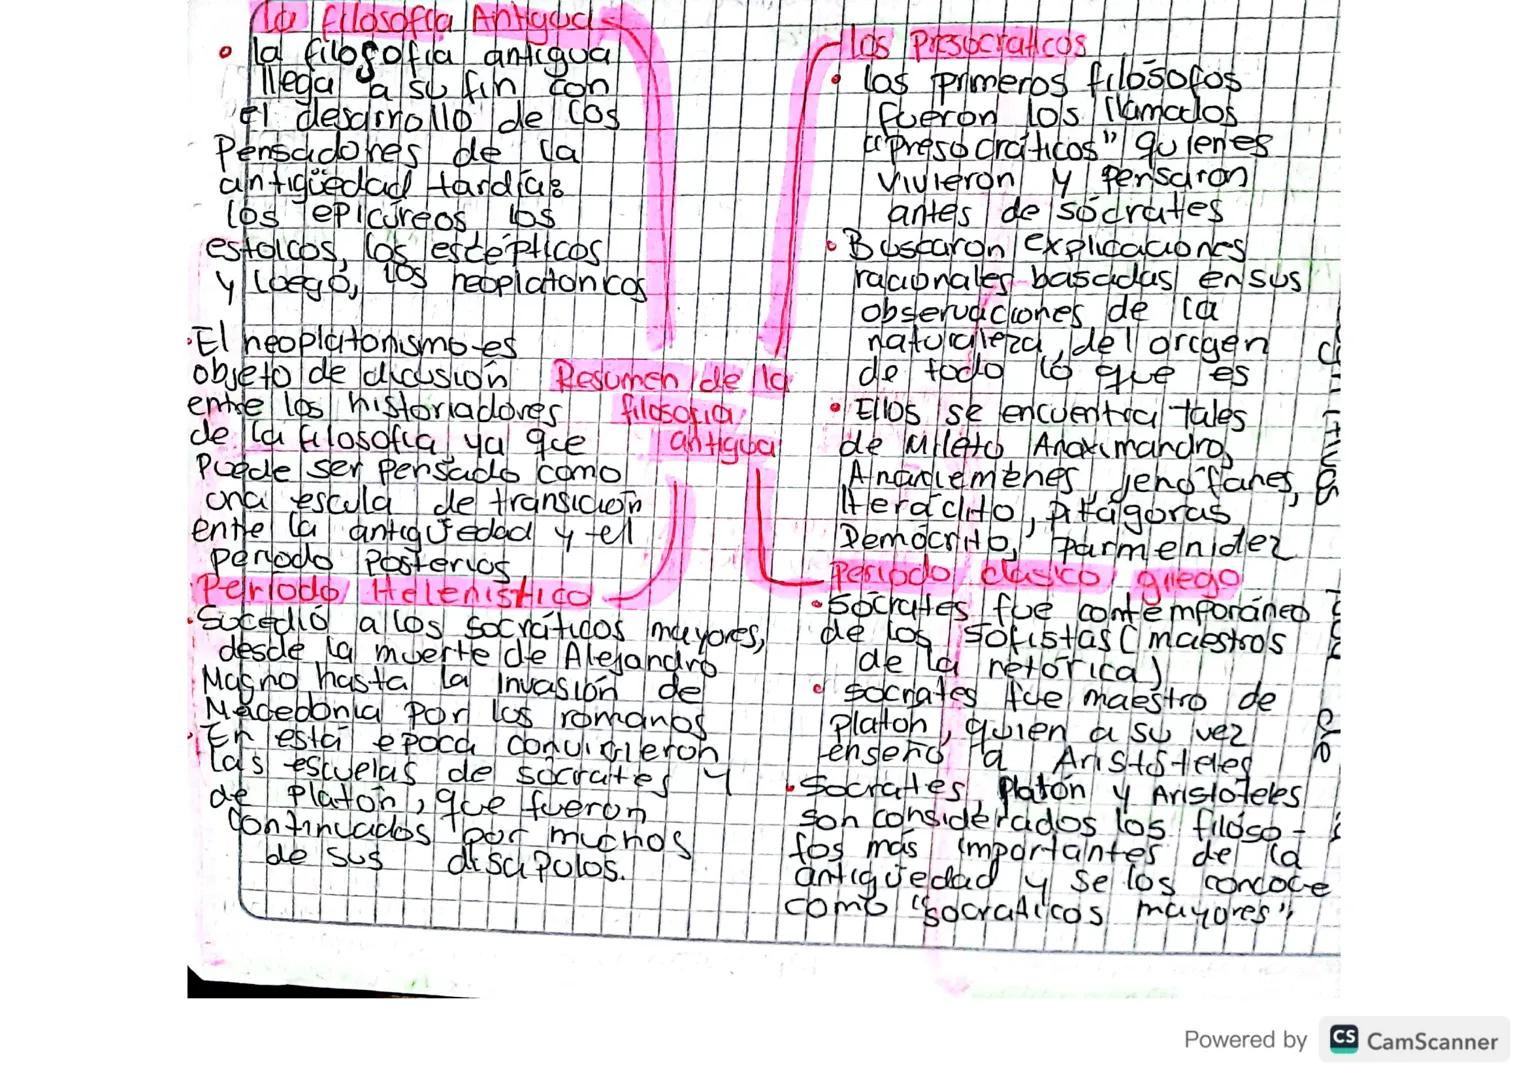 la filosofía Antigua
la filosofía antigua
llega a su fin con
el desarrollo de los
Pensadores de la
antigüedad tardía:
los epicúreos los
estoicos, los escépticos
y luego, los neoplatónicos
El neoplatonismo es
objeto de dicusión
entre los historiadores
de la filosofía ya que
Puede ser pensado como
una escula de transición
entre la antigüedad y el
periodo posterios
Período Helenístico
Sucedió a los socráticos mayores,
desde la muerte de Alejandro
Magno hasta la invasión de
Macedonia por los romanos
En está época convigieron
las escuelas de sócrates y
de platón, que fueron
continuados por muchos
de sus disipulos.
Resumen de la
filosofía
antigua
los Presocraticos
los primeros filósofos
fueron los llamados
"presocráticos" quienes
vivieron y pensaron
antes de sócrates
Buscaron explicaciones
racionales basadas en sus
observaciones de la
naturaleza, del origen
de todo lo que es
Ellos se encuentra tales
de Mileto Anaximandro,
Anaxiemenes, jenófanes,
Heráclito, pitágoras
Demócrito, parmenidez
Periodo clásico griego
Sócrates fue contemporáneo
de los sofistas (maestros
de la retórica)
socrates fue maestro de
platon, quien a su vez
enseño a Aristóteles
Socrates, Platón y Aristoteles
son considerados los filóso-
fos más importantes de la
antigüedad y se los concoce
como "socraticos mayores",
Powered by CS CamScanner